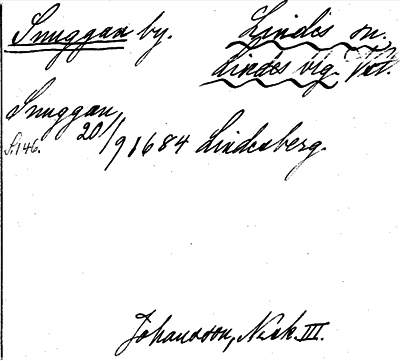 Snuggan by. Lindes sn.
Lindes vig. Vstl.
Snuggan,
S. 146. 20/9 1684 Lindesberg.
Johansson, Nsk. III.